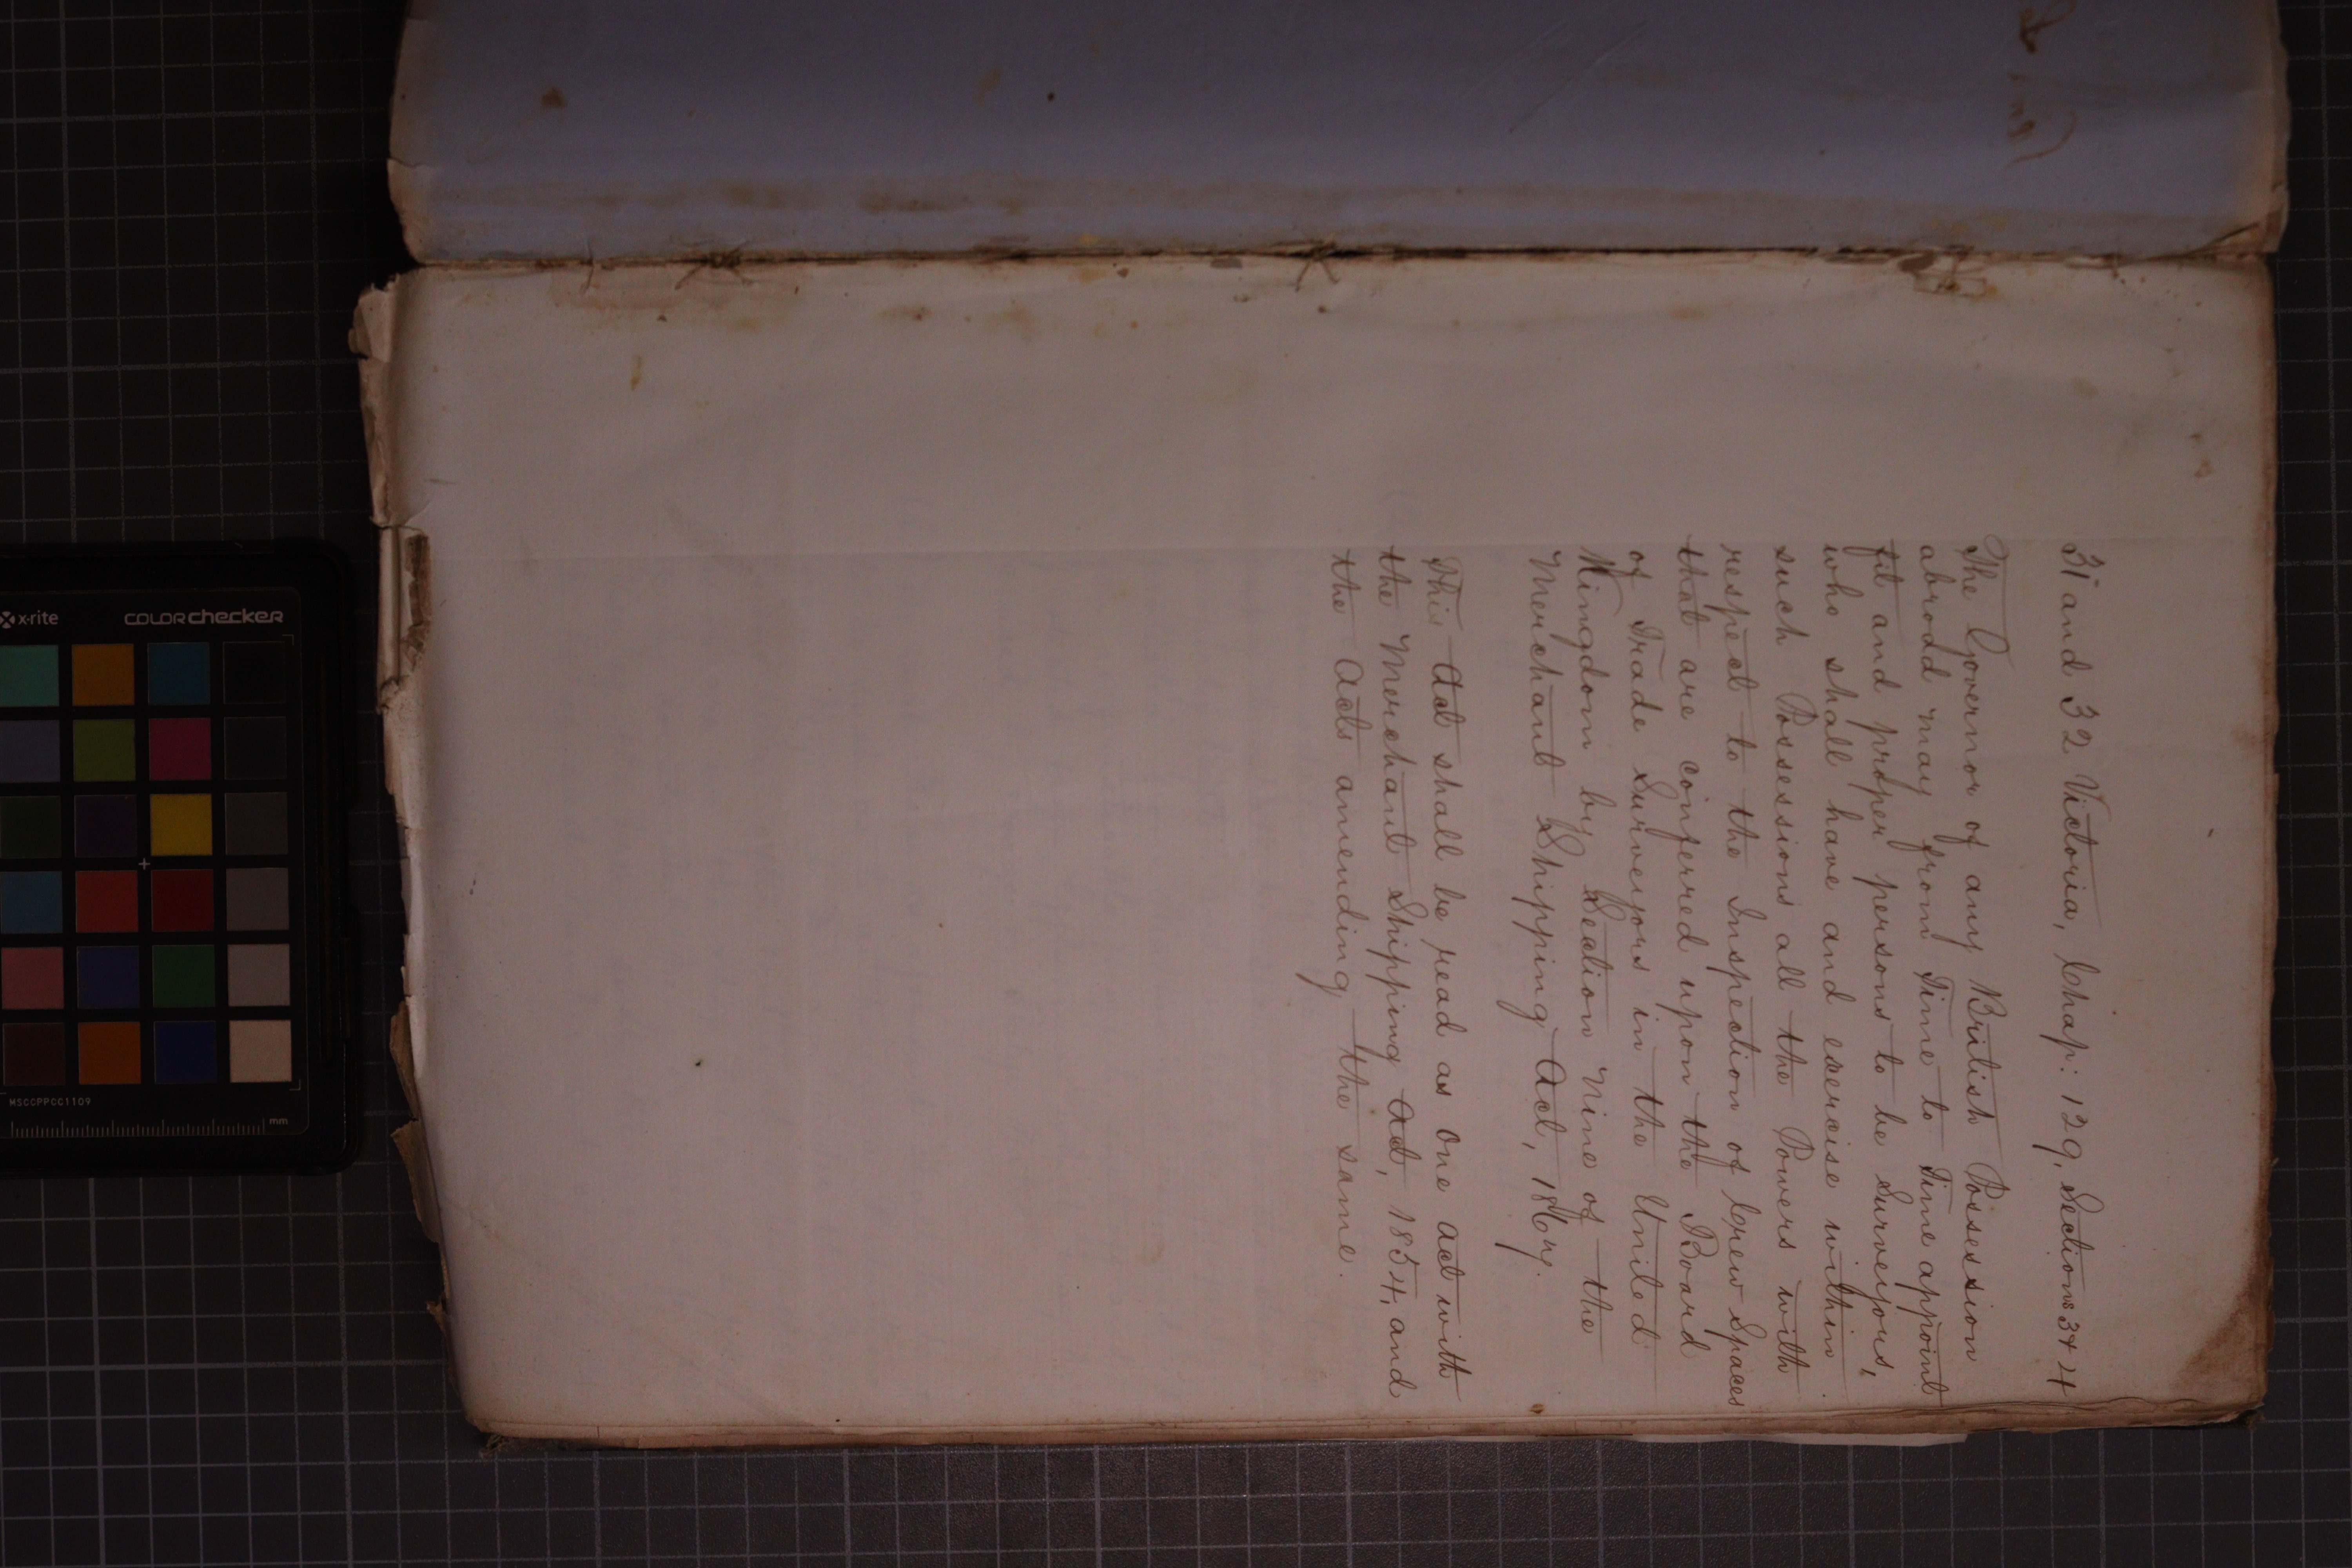 31 and 32 Victoria, Chap: 129, Sections 3 & 4
The Governor of any British Possession
abroad may from Time to Time appoint
fit and proper persons to be Surveyors,
who shall have and exercise within
such Possessions all the Powers with
respect to the Inspection of Crew Spaces
that are conferred upon the Board
of Trade Surveyors in the United
Kingdom by Section Nine of the
Merchant Shipping Act, 1867.
This Act shall be read as One Act with
the Merchant Shipping Act, 1854, and
the Acts amending the same.
x·rite
COLORchecker
MSCCPPCC1109
mm